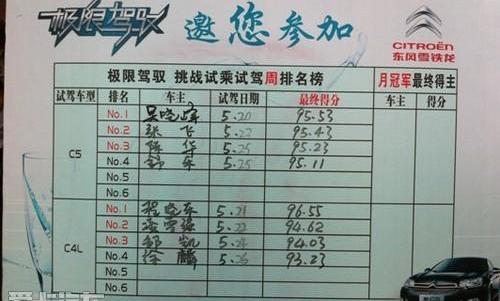 极限驾驭 邀您参加
CITROËN
东风雪铁龙
极限驾驭 挑战试乘试驾周排名榜 月冠军最终得主
试驾车型 排名 车主 试驾日期 最终得分 车主 得分
C5
No.1 吴晓峰 5.20 95.53
No.2 张飞 5.22 95.43
No.3 陈华 5.25 95.23
No.4 5.25 95.11
No.5
No.6
C4L
No.1 程晓东 5.21 96.55
No.2 5.22 94.62
No.3 邹凯 5.24 94.03
No.4 徐麟 5.26 93.23
No.5
No.6